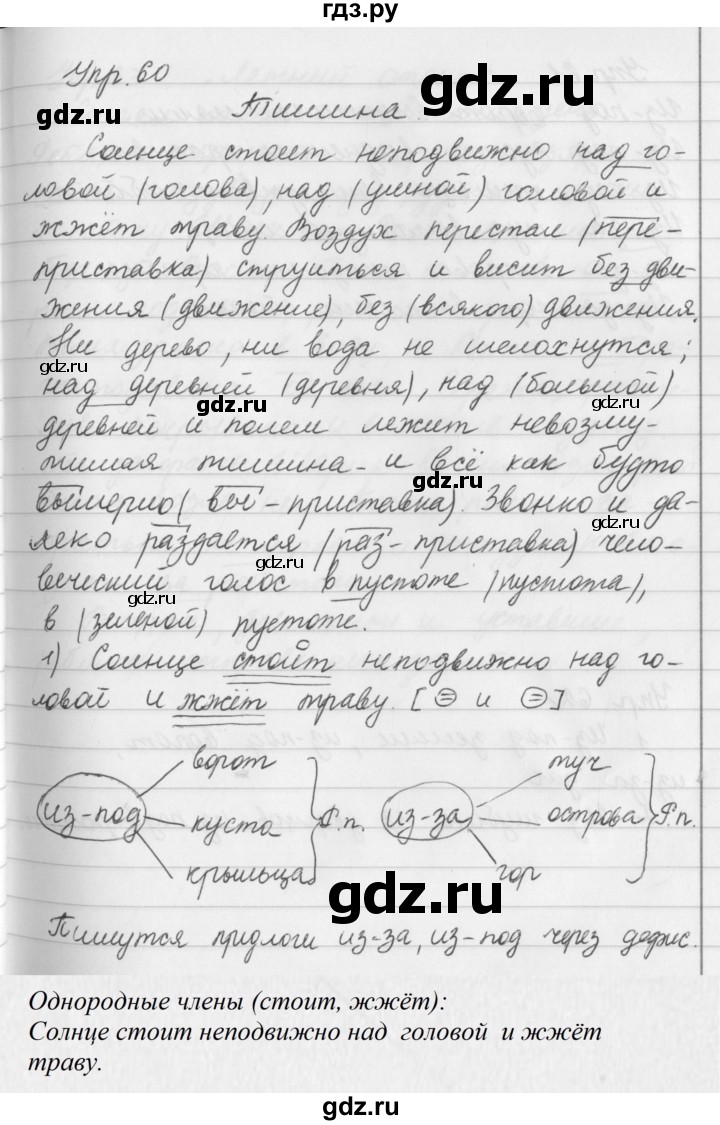 гдз.ру
Упр. 60
gdz.ru
Тишина.
gdz.ru
Солнце стоит неподвижно над го-
ловой (голова), над (умной) головой и
жжёт траву. Воздух перестал (пере-
приставка) струиться и висит без дви-
жения (движение), без (всякого) движения.
Ни дерево, ни вода не шелохнутся;
gdz.ru
над деревней (деревня), над (большой)
gdz.ru
gdz.ru
деревней и полем лежит невозму-
тимая тишина - и всё как будто
gdz.ru
вымерло (вы - приставка). Звонко и да-
gdz.ru
леко раздаётся (раз - приставка) чело-
веческий голос в пустоте (пустота),
gdz.ru
в (зеленой) пустоте.
1) Солнце стоит неподвижно над го-
ловой и жжёт траву. [ и ]
gdz.ru
ворот туч
из-под куста Р.п. из-за острова Р.п.
gdz.ru
крыльца гор
gdz.ru
Пишутся предлоги из-за, из-под через дефис.
Однородные члены (стоит, жжёт):
Солнце стоит неподвижно над головой и жжёт
траву.
gdz.ru